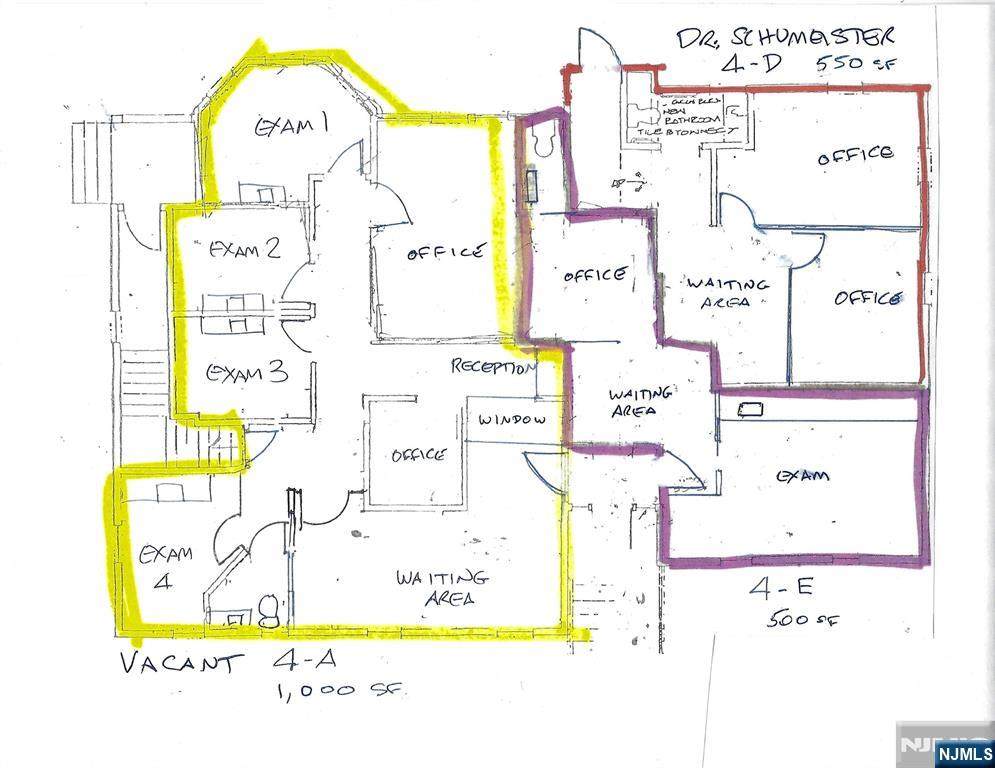 DR. SCHUMEISTER
4-D 550 SF
NEW
BATHROOM
EXAM 1
OFFICE
EXAM 2
OFFICE
OFFICE
WAITING
AREA
OFFICE
EXAM 3
RECEPTION
WAITING
AREA
WINDOW
OFFICE
EXAM
EXAM
4
WAITING
AREA
4-E
500 SF
VACANT 4-A
1,000 SF
NJMLS
NJMLS